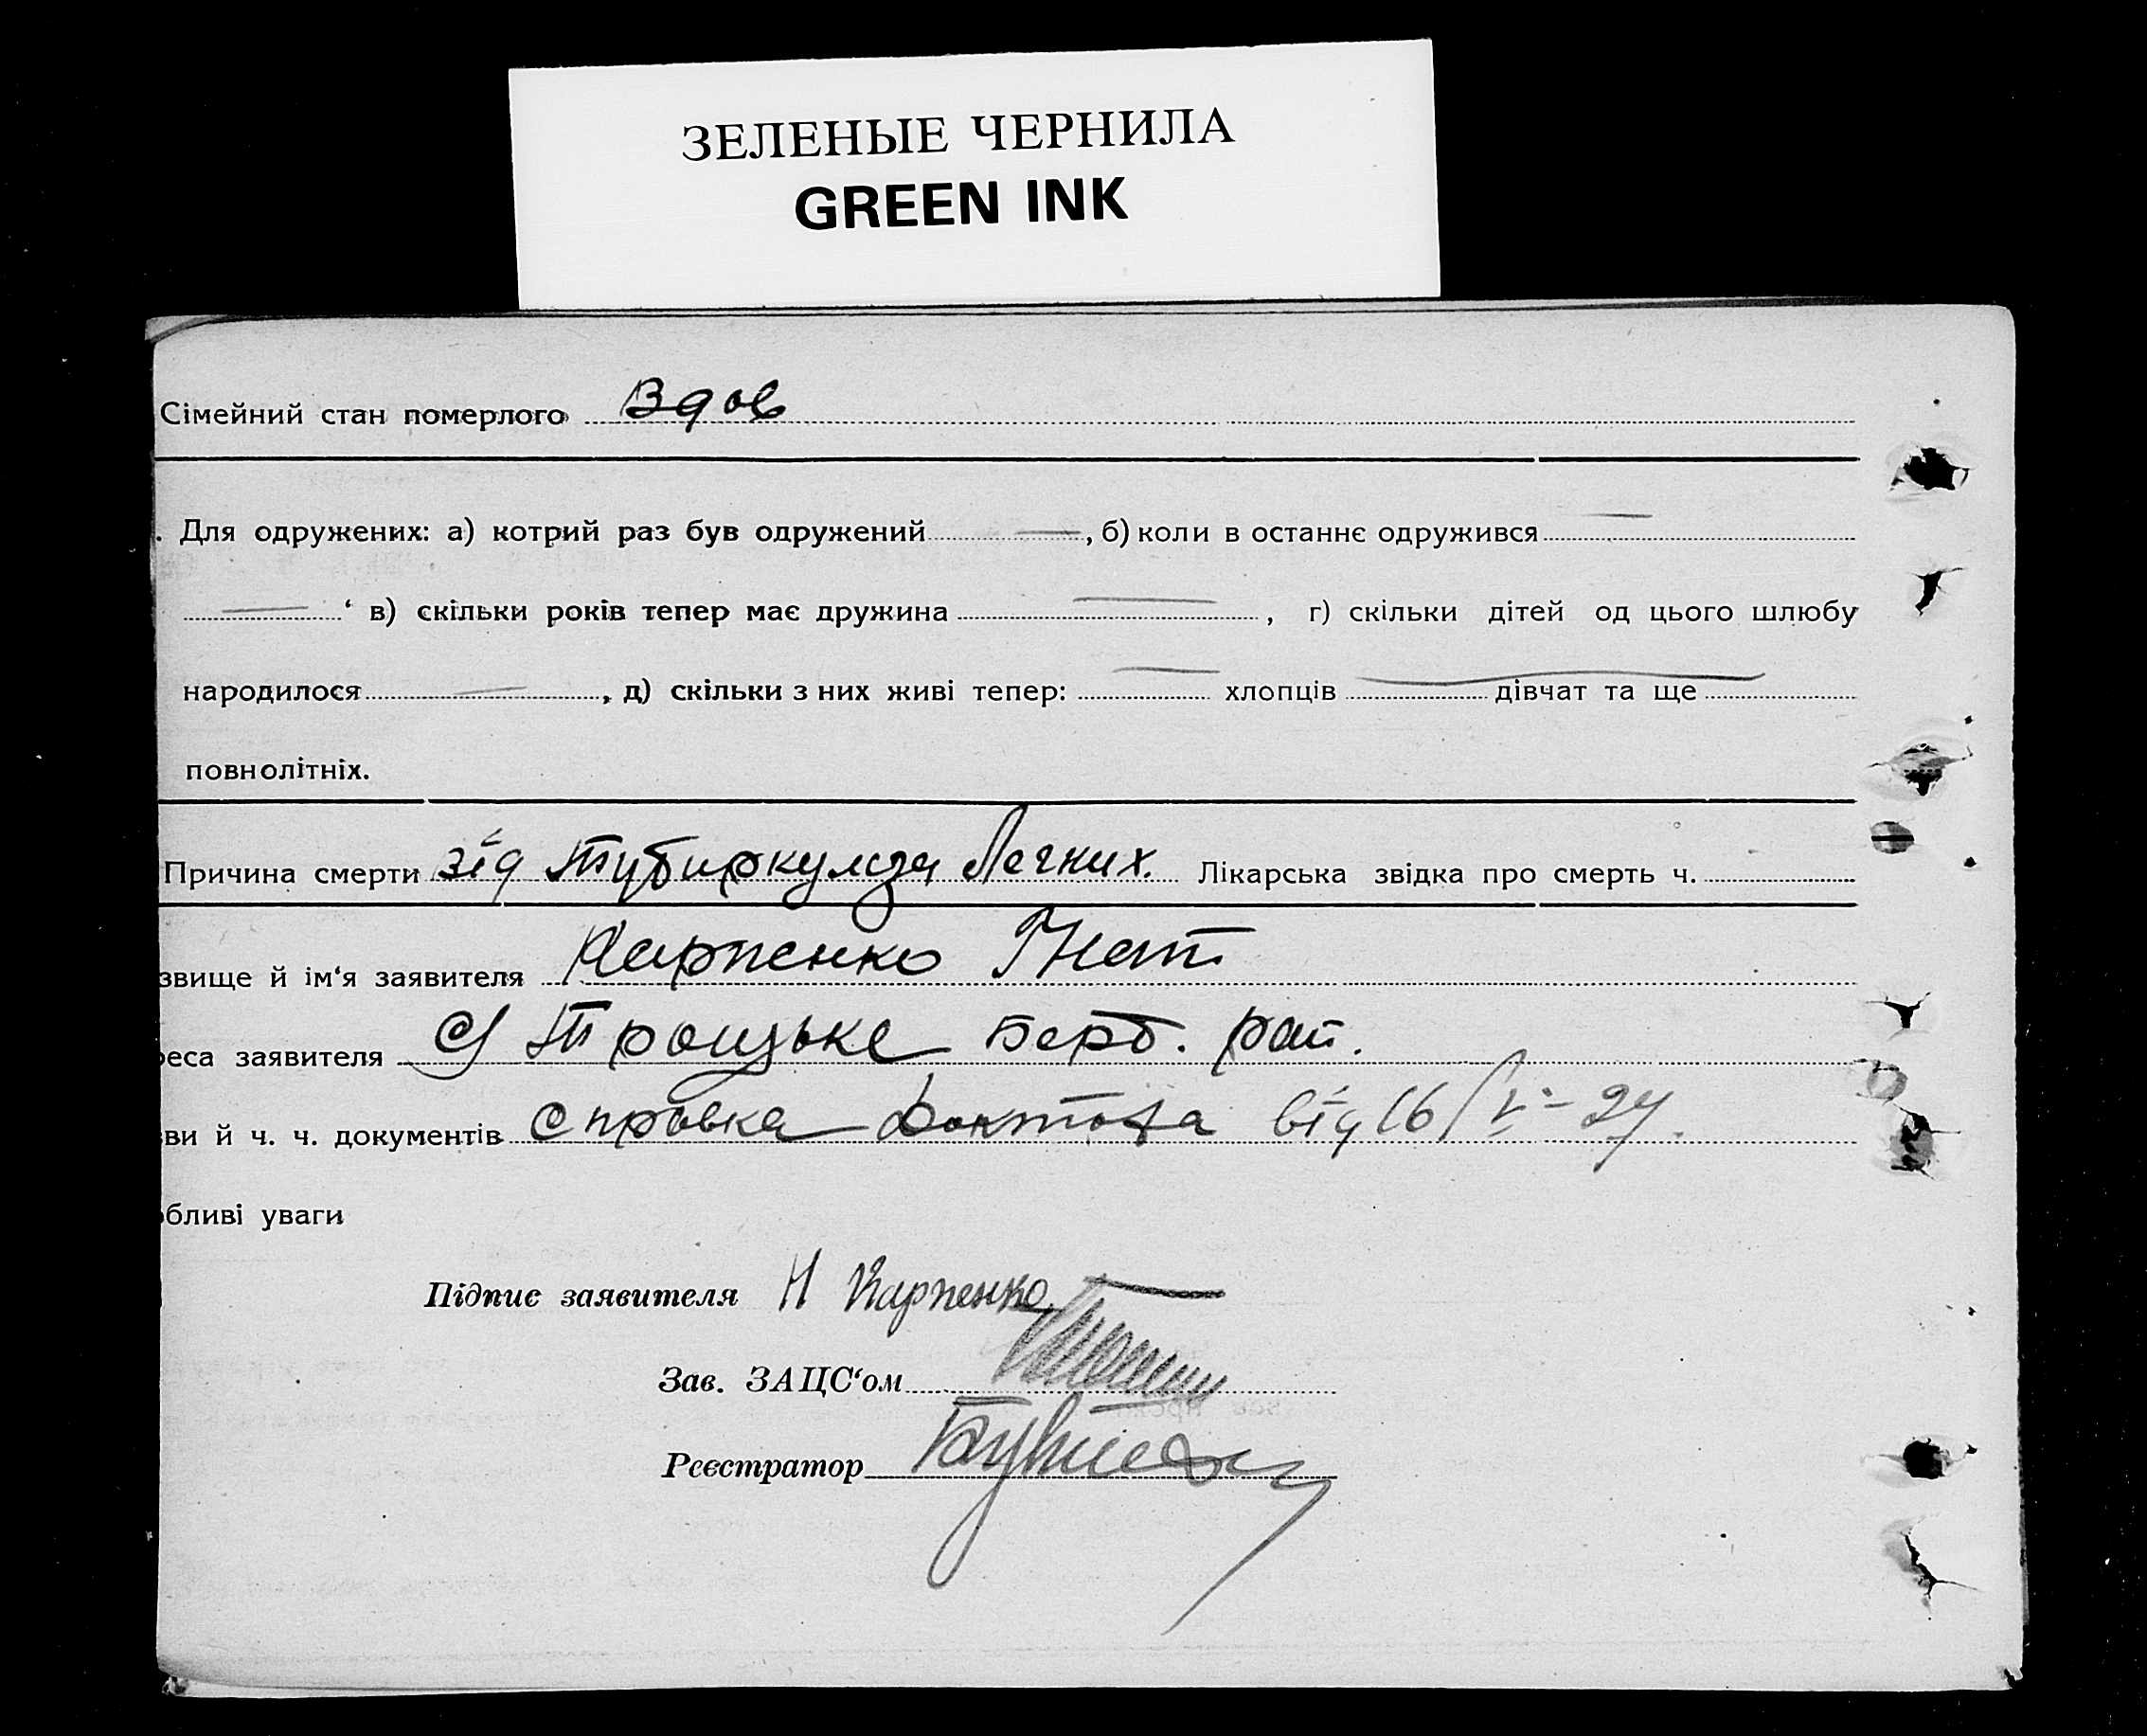 ЗЕЛЕНЫЕ ЧЕРНИЛА
GREEN INK
Сімейний стан померлого Вдов
. Для одружених: а) котрий раз був одружений —, б) коли в останнє одружився —
— ‘ в) скільки років тепер має дружина —, г) скільки дітей од цього шлюбу
народилося —, д) скільки з них живі тепер: — хлопців — дівчат та ще
повнолітніх.
Причина смерти від Легких. Лікарська звідка про смерть ч.
звище й ім‘я заявителя Карпенко Гнат
реса заявителя с/ Троицьке Берд. рай.
зви й ч. ч. документів справка Доктора від 16/V – 27.
обливі уваги
Підпис заявителя Карпенко
Зав. ЗАЦС‘ом
Реєстратор